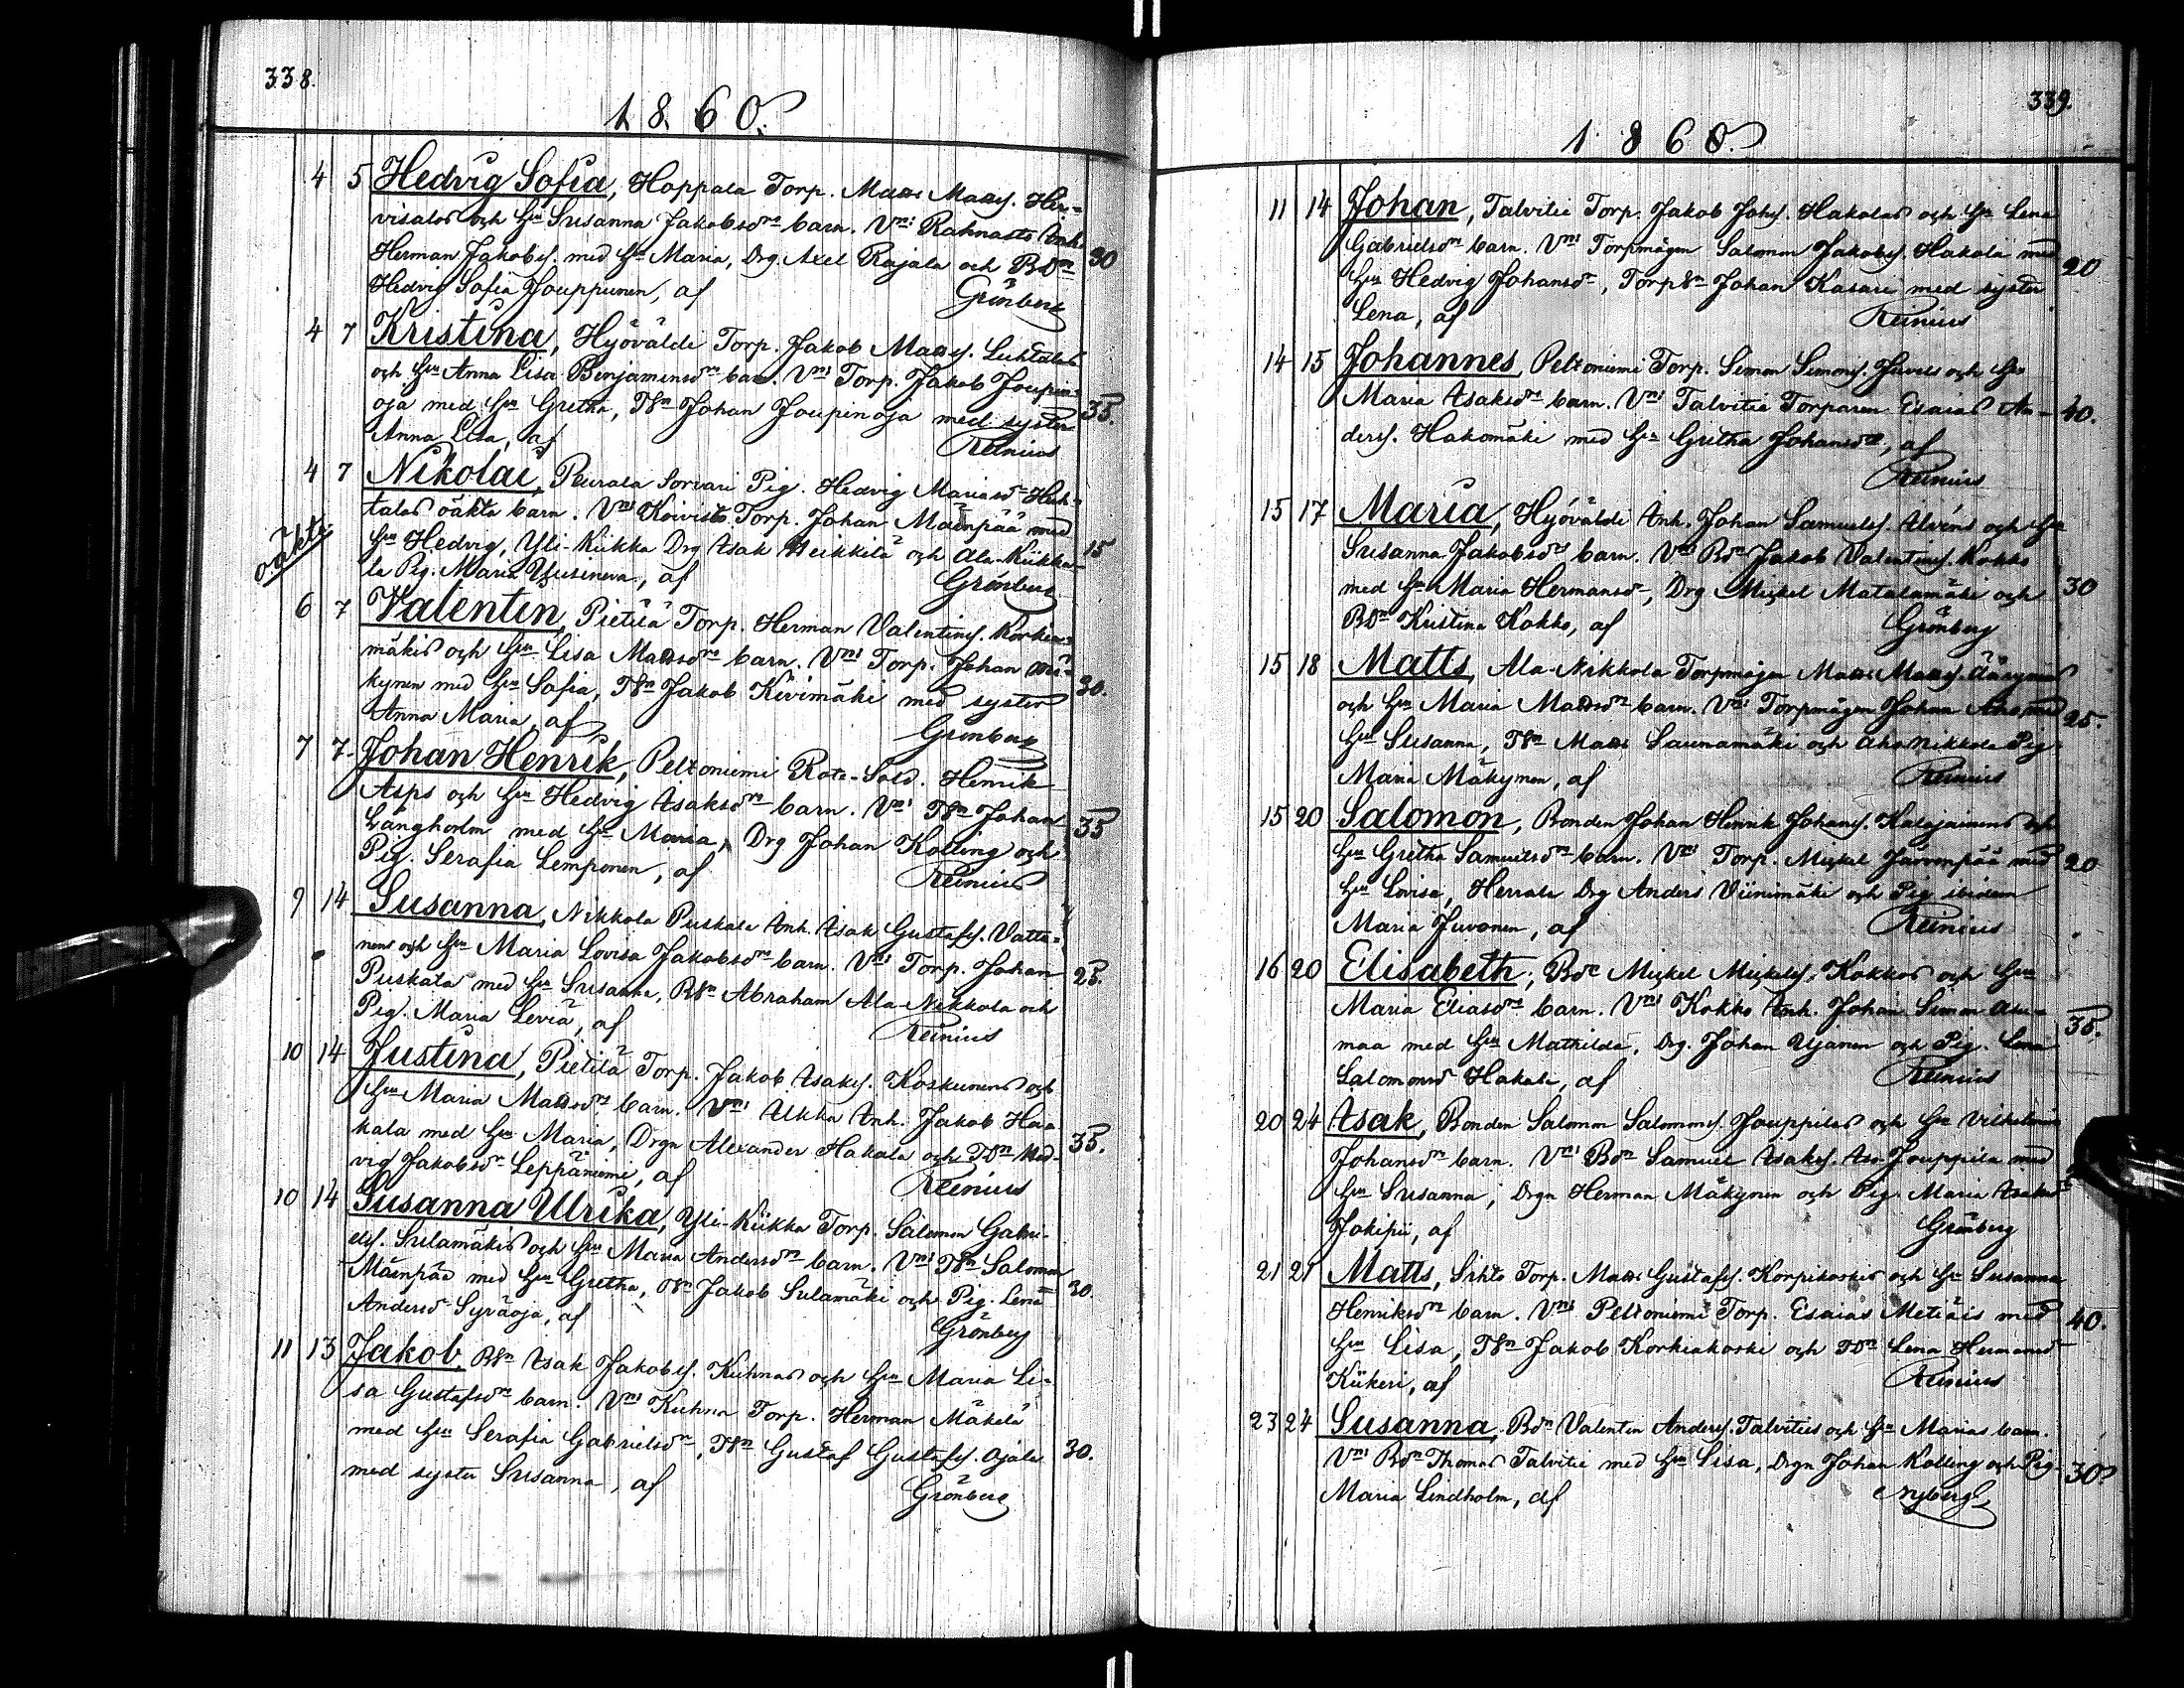 338.
1860.
4 5 Hedvig Sofia, Hoppala Torp. Matts Matts. Her-
visalas och Hu Susanna Jakobsdrs barn. Vns Rahnasto Inh.
Herman Jakobs. med Hu Maria, Drg. Axel Rajala och BDn 30
Hedvig Sofia Jouppunen, af Grönberg
4 7 Kristina, Hyöväldi Torp. Jakob Matts. Luhtalas
och Hu Anna Lisa Benjaminsdrs barn. Vns Torp. Jakob Joupin-
oja med Hu Gretha, TSn Johan Joupinoja med syster 35.
Anna Lisa, af Reinius
4 7 Nikolai, Peurala Sorvari Pig. Hedvig Mariasdr Huh-
talas oäkta barn. Vns Koivisto Torp. Johan Mäenpää med
oäkta Hu Hedvig, Yli-Kiikka Drg Isak Heikkilä och Ala-Kiikka- 15
la Pig. Maria Yusineva, af Grönberg
6 7 Valentin, Pietilä Torp. Herman Valentins. Korkia-
mäkis och Hu Lisa Mattsdrs barn. Vns Torp. Johan Mä-
kynen med Hu Sofia, TSn Jakob Kivimäki med syster 30.
Anna Maria, af Grönberg
7 7 Johan Henrik, Peltoniemi Rote-Sold. Henrik
Asps och Hu Hedvig Isaksdrs barn. Vns TSn Johan
Långholm med Hu Maria, Drg Johan Kolling och 35
Pig. Serafia Lemponen, af Reinius
9 14 Susanna, Nikkola Puskala Inh. Isak Gustafs. Vatta-
nens och Hu Maria Lovisa Jakobsdrs barn. Vns Torp. Johan
Puskala med Hu Susanna, BSn Abraham Ala-Nikkola och 25.
Pig. Maria Leviä, af Reinius
10 14 Justina, Pietilä Torp. Jakob Isaks. Koskunens och
Hu Maria Mattsdrs barn. Vns Ilkka Inh. Jakob Ha-
kala med Hu Maria, Drgn Alexander Hakala och TDn Hed- 35.
vig Jakobsdr Leppäniemi, af Reinius
10 14 Susanna Ulrika, Yli-Kiikka Torp. Salomon Gabri-
els. Sulamäkis och Hu Maria Andersdrs barn. Vns TSn Salomon
Mäenpää med Hu Gretha, TSn Jakob Sulamäki och Pig. Lena 30.
Andersdr Syräoja, af Grönberg
11 13 Jakob, BSn Isak Jakobs. Kuhnas och Hu Maria Li-
sa Gustafsdrs barn. Vns Kuhna Torp. Herman Mäkelä
med Hu Serafia Gabrielsdr, TSn Gustaf Gustafs. Ojala 30.
med syster Susanna, af Grönberg
339.
1860.
11 14 Johan, Talvitie Torp. Jakob Johs. Hakolas och Hu Lena
Gabrielsdrs barn. Vns Torpmågen Salomon Jakobs. Hakola med
Hu Hedvig Johansdr, TorpSn Johan Kasari med syster 20
Lena, af Reinius
14 15 Johannes, Peltoniemi Torp. Simon Simons. Juvels och Hu
Maria Isaksdrs barn. Vns Talvitie Torparen Esaias An- 40.
ders. Hakomäki med Hu Gretha Johansdr, af
Reinius
15 17 Maria, Hyöväldi Inh. Johan Samuels. Alvéns och Hu
Susanna Jakobsdrs barn. Vns Bdn Jakob Valentins. Kokko
med Hu Maria Hermansdr, Drg Mickel Matalamäki och 30
BDn Kristina Kokko, af Grönberg
15 18 Matts, Ala-Nikkola Torpmågen Matts Matts. Äärynens
och Hu Maria Mattsdrs barn. Vns Torpmågen Johan Aho med 25.
Hu Susanna, TSn Matts Saunamäki och Aho Nikkola Pig
Maria Mäkynen, af Reinius
15 20 Salomon, Bonden Johan Henrik Johans. Kalajainens och
Hu Gretha Samuelsdrs barn. Vns Torp. Mickel Järvenpää med 20
Hu Lovisa, Herrala Drg Anders Viinimäki och Pig ibidem
Maria Juvonen, af Reinius
16 20 Elisabeth, Bde Mickel Mickels. Kokkos och Hu
Maria Eliasdrs barn. Vns Kokko Inh. Johan Simon Asu-
maa med Hu Mathilda, Drg. Johan Ujanen och Pig. Lena 35.
Salomonsdr Hakala, af Reinius
20 24 Isak, Bonden Salomon Salomons. Jouppilas och Hu Vilhelmina
Johansdrs barn. Vns Bdn Samuel Isaks. Iso-Jouppila med
Hu Susanna, Drgn Herman Mäkynen och Pig. Maria Isaksdr
Jokipii, af Grönberg
21 21 Matts, Sihto Torp. Matts Gustafs. Korpikoskis och Hu Susanna
Henriksdrs barn. Vns Peltoniemi Torp. Esaias Metiäis med 40.
Hu Lisa, TSn Jakob Korkiakoski och TDn Lena Hermansdr
Kiikeri, af Reinius
23 24 Susanna, Bdn Valentin Anders. Talvities och Hu Marias barn.
Vns Bdn Thomas Talvitie med Hu Lisa, Drgn Johan Kolling och Pig 30.
Maria Lindholm, af Nyberg